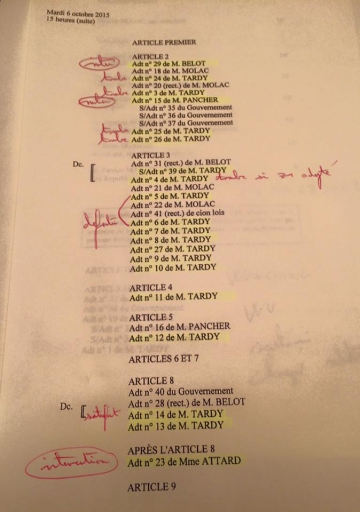 Mardi 6 octobre 2015
15 heures (suite)
ARTICLE PREMIER
ARTICLE 2
Adt n° 29 de M. BELOT
Adt n° 18 de M. MOLAC
tombe Adt n° 24 de M. TARDY
Adt n° 20 (rect.) de M. MOLAC
tombe Adt n° 3 de M. TARDY
Adt n° 15 de M. PANCHER
S/Adt n° 35 du Gouvernement
S/Adt n° 36 du Gouvernement
S/Adt n° 37 du Gouvernement
tombe Adt n° 25 de M. TARDY
tombe Adt n° 26 de M. TARDY
ARTICLE 3
Dc. [ Adt n° 31 (rect.) de M. BELOT
S/Adt n° 39 de M. TARDY
Adt n° 4 de M. TARDY tombe si 31 adopté
Adt n° 21 de M. MOLAC
Adt n° 5 de M. TARDY
Adt n° 22 de M. MOLAC
Adt n° 41 (rect.) de cion lois
Adt n° 6 de M. TARDY
Adt n° 7 de M. TARDY
Adt n° 8 de M. TARDY
Adt n° 27 de M. TARDY
Adt n° 9 de M. TARDY
Adt n° 10 de M. TARDY
ARTICLE 4
Adt n° 11 de M. TARDY
ARTICLE 5
Adt n° 16 de M. PANCHER
Adt n° 12 de M. TARDY
ARTICLES 6 ET 7
ARTICLE 8
Adt n° 40 du Gouvernement
Adt n° 28 (rect.) de M. BELOT
Dc. [ satisfait Adt n° 14 de M. TARDY
Adt n° 13 de M. TARDY
APRÈS L'ARTICLE 8
intervention Adt n° 23 de Mme ATTARD
ARTICLE 9